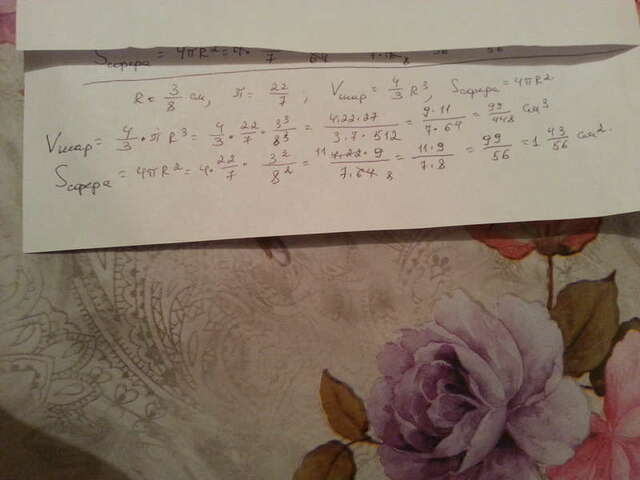 Sсфера = 4πR² = 4·
R = 3/8 см, π = 22/7, Vшар = 4/3 R³, Sсфера = 4πR²
Vшар = 4/3 · πR³ = 4/3 · 22/7 · 3³/8³ = 4·22·27/3·7·512 = 9·11/7·64 = 99/448 см³
Sсфера = 4πR² = 4·22/7 · 3²/8² = 11 4·22·9/7·64 8 = 11·9/7·8 = 99/56 = 1 43/56 см².